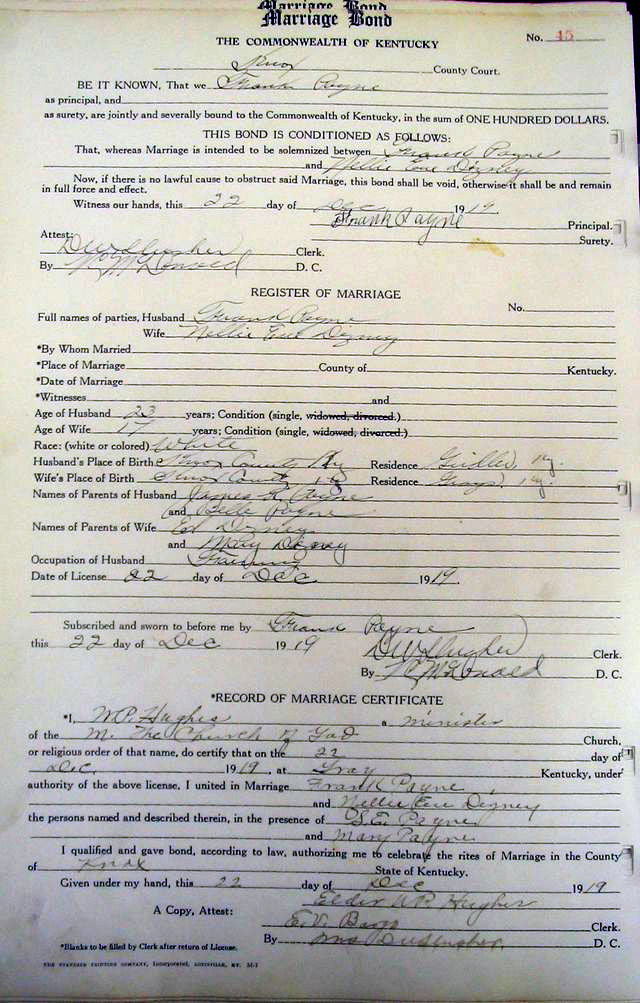 Marriage Bond
Marriage Bond
THE COMMONWEALTH OF KENTUCKY
No. 45
Knox County Court.
BE IT KNOWN, That we Frank Payne
as principal, and
as surety, are jointly and severally bound to the Commonwealth of Kentucky, in the sum of ONE HUNDRED DOLLARS.
THIS BOND IS CONDITIONED AS FOLLOWS:
That, whereas Marriage is intended to be solemnized between Frank Payne
and Nellie Dizney
Now, if there is no lawful cause to obstruct said Marriage, this bond shall be void, otherwise it shall be and remain
in full force and effect.
Witness our hands, this 22 day of Dec 1919.
Frank Payne Principal.
Surety.
Attest:
Clerk.
By McDonald D. C.
REGISTER OF MARRIAGE
No.
Full names of parties, Husband Frank Payne
Wife Nellie Dizney
*By Whom Married
*Place of Marriage County of Kentucky.
*Date of Marriage
*Witnesses and
Age of Husband 23 years; Condition (single, widowed, divorced.)
Age of Wife 17 years; Condition (single, widowed, divorced.)
Race: (white or colored) White
Husband's Place of Birth Knox County Ky Residence Ky.
Wife's Place of Birth Knox County Ky Residence Grays, Ky.
Names of Parents of Husband James Payne
and Belle Payne
Names of Parents of Wife Ed Dizney
and Mary Dizney
Occupation of Husband Farming
Date of License 22 day of Dec 1919.
Subscribed and sworn to before me by Frank Payne
this 22 day of Dec 1919 Clerk.
By McDonald D. C.
*RECORD OF MARRIAGE CERTIFICATE
*I, W.P. Hughes a minister
of the The Church of God Church,
or religious order of that name, do certify that on the 22 day of
Dec. 1919, at Gray Kentucky, under
authority of the above license, I united in Marriage Frank Payne
and Nellie Dizney
the persons named and described therein, in the presence of S.E. Payne
and Mary Payne
I qualified and gave bond, according to law, authorizing me to celebrate the rites of Marriage in the County
of Knox State of Kentucky.
Given under my hand, this 22 day of Dec 1919
Elder W.P. Hughes
A Copy, Attest:
E.V. Clerk.
By D. C.
*Blanks to be filled by Clerk after return of License.
THE STANDARD PRINTING COMPANY, Incorporated, LOUISVILLE, KY.